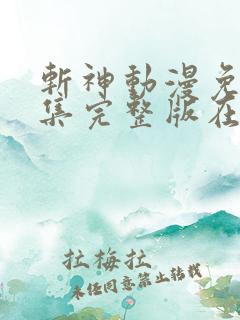 斬神動漫免
集完整版在
拉梅拉
未经同意禁止转载